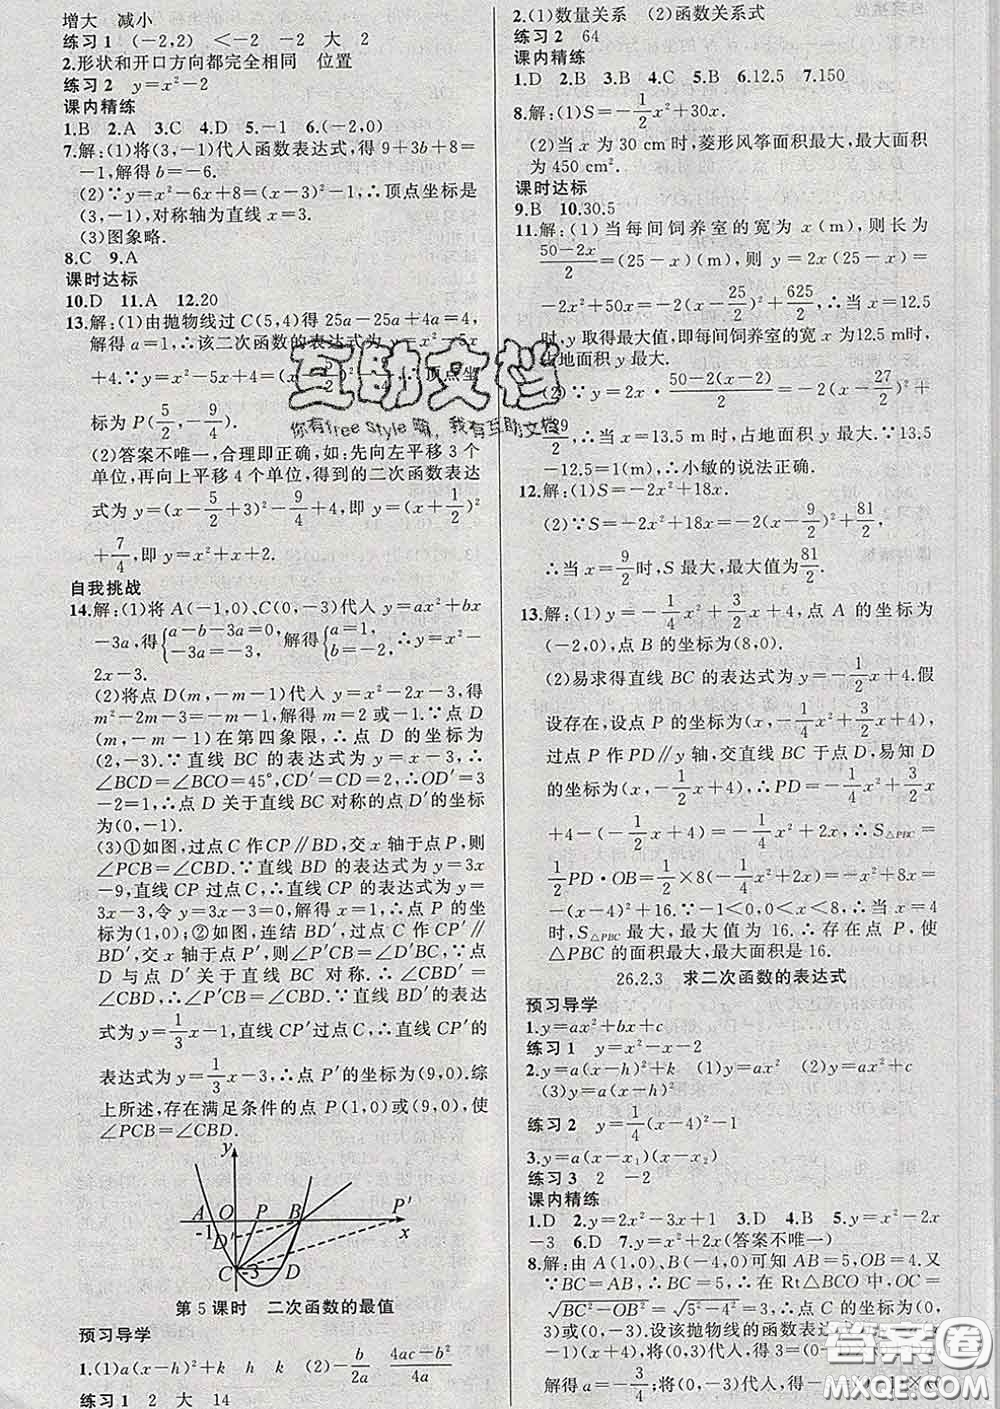 增大 减小
练习1 (-2,2) <-2 -2 大 2
2.形状和开口方向都完全相同 位置
练习2 y=x²-2
课内精练
1.B 2.A 3.C 4.D 5.-1 6.(-2,0)
7.解:(1)将(3,-1)代人函数表达式,得 9+3b+8=
-1,解得 b=-6.
(2)∵y=x²-6x+8=(x-3)²-1,∴顶点坐标是
(3,-1),对称轴为直线 x=3.
(3)图象略.
8.C 9.A
课时达标
10.D 11.A 12.20
13.解:(1)由抛物线过 C(5,4)得 25a-25a+4a=4,
解得 a=1,∴该二次函数的表达式为 y=x²-5x
+4.∵y=x²-5x+4=(x-5/2)²-9/4,∴顶点坐
标为 P(5/2,-9/4).
(2)答案不唯一,合理即正确,如:先向左平移 3 个
单位,再向上平移 4 个单位,得到的二次函数表达
式为 y=(x-5/2+3)²-9/4+4,即 y=(x+1/2)²
+7/4,即 y=x²+x+2.
自我挑战
14.解:(1)将 A(-1,0)、C(0,-3)代人 y=ax²+bx
-3a,得{a-b-3a=0, -3a=-3, 解得{a=1, b=-2, ∴y=x²-
2x-3.
(2)将点 D(m,-m-1)代人 y=x²-2x-3,得
m²-2m-3=-m-1,解得 m=2 或-1.∵点 D
(m,-m-1)在第四象限,∴点 D 的坐标为
(2,-3).∵直线 BC 的表达式为 y=x-3,∴
∠BCD=∠BCO=45°,CD′=CD=2,∴OD′=3
-2=1,∴点 D 关于直线 BC 对称的点 D′的坐标
为(0,-1).
(3)①如图,过点 C 作 CP∥BD,交 x 轴于点 P,则
∠PCB=∠CBD.∵直线 BD 的表达式为 y=3x
-9,直线 CP 过点 C,∴直线 CP 的表达式为 y=
3x-3,令 y=3x-3=0,解得 x=1,∴点 P 的坐标
为(1,0);②如图,连结 BD′,过点 C 作 CP′∥
BD′,交 x 轴于点 P′,则∠P′CB=∠D′BC,∵点
D 与点 D′关于直线 BC 对称.∴∠D′BC=
∠CBD,∴∠P′CB=∠CBD.∵直线 BD′的表达
式为 y=1/3x-1,∴直线 CP′过点 C,∴直线 CP′的
表达式为 y=1/3x-3,∴点 P′的坐标为(9,0).综
上所述,存在满足条件的点 P(1,0)或(9,0),使
∠PCB=∠CBD.
y
A O P B P′
-1 x
D′
C -3 D
第 5 课时 二次函数的最值
预习导学
1.(1)a(x-h)²+k h k (2)-b/2a (4ac-b²)/4a
练习1 2 大 14
2.(1)数量关系 (2)函数关系式
练习2 64
课内精练
1.D 2.B 3.B 4.C 5.B 6.12.5 7.150
8.解:(1)S=-1/2x²+30x.
(2)当 x 为 30 cm 时,菱形风筝面积最大,最大面积
为 450 cm².
课时达标
9.B 10.30.5
11.解:(1)当每间饲养室的宽为 x(m),则长为
(50-2x)/2=(25-x)(m),则 y=2x(25-x)=
-2x²+50x=-2(x-25/2)²+625/2,∴当 x=12.5
时,y 取得最大值,即每间饲养室的宽 x 为 12.5 m时,
占地面积 y 最大.
(2)∵y=2x·(50-2(x-2))/2=-2(x-27/2)²+
729/2,∴当 x=13.5 m时,占地面积 y 最大.∵13.5
-12.5=1(m),∴小敏的说法正确.
12.解:(1)S=-2x²+18x.
(2)∵S=-2x²+18x=-2(x-9/2)²+81/2,
∴当 x=9/2时,S 最大,最大值为81/2.
13.解:(1)y=-1/4x²+3/2x+4,点 A 的坐标为
(-2,0),点 B 的坐标为(8,0).
(2)易求得直线 BC 的表达式为 y=-1/2x+4.假
设存在,设点 P 的坐标为(x,-1/4x²+3/2x+4),
过点 P 作 PD∥y 轴,交直线 BC 于点 D,易知 D
的坐标为(x,-1/2x+4),∴PD=-1/4x²+3/2x
+4-(-1/2x+4)=-1/4x²+2x,∴S△PBC=
1/2PD·OB=1/2×8(-1/4x²+2x)=-x²+8x=
-(x-4)²+16.∵-1<0,0<x<8,∴当 x=4
时,S△PBC最大,最大值为 16.∴存在点 P,使
△PBC 的面积最大,最大面积是 16.
26.2.3 求二次函数的表达式
预习导学
1.y=ax²+bx+c
练习1 y=x²-x-2
2.y=a(x-h)²+k (1)y=ax² (2)y=ax²+c
(3)y=a(x-h)²
练习2 y=1/4(x-4)²-1
3.y=a(x-x₁)(x-x₂)
练习3 2 -2
课内精练
1.D 2.y=2x²-3x+1 3.D 4.B 5.y=x²-2x
-3 6.D 7.y=x²+2x(答案不唯一)
8.解:由 A(1,0)、B(-4,0)可知 AB=5,OB=4.又
∵BC=AB,∴BC=5,∴在 Rt△BCO 中,OC=
√(BC²-OB²)=√(5²-4²)=3,∴点 C 的坐标为(0,
3)或(0,-3).设该抛物线的函数表达式
-1)(x+4),将(0,3)代人得 3=
解得 a=-3/4;将(0,-3)代人,得-3=
互助文档
你有free style嘛,我有互助文档
答案圈
MXQE.COM